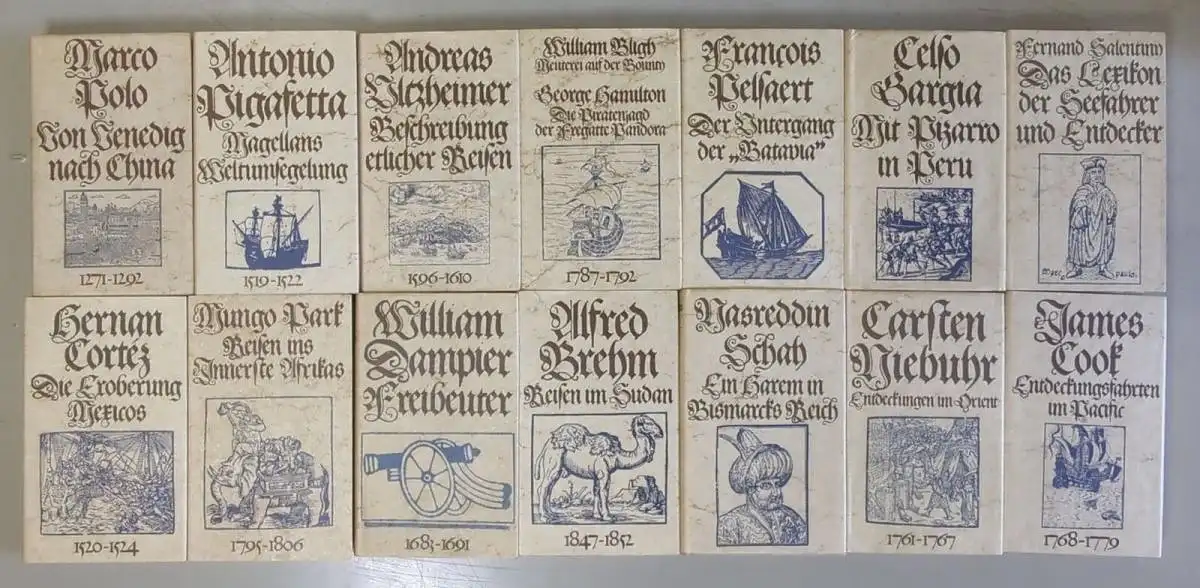 Marco
Polo
Von Venedig
nach China
1271-1292
Antonio
Pigafetta
Magellans
Weltumsegelung
1519-1522
Andreas
Ultzheimer
Beschreibung
etlicher Reisen
1596-1610
William Bligh
Meuterei auf der Bounty
George Hamilton
Die Piratenjagd
der Fregatte Pandora
1787-1792
François
Pelsaert
Der Untergang
der „Batavia"
Celso
Gargia
Mit Pizarro
in Peru
Fernand Salentiny
Das Lexikon
der Seefahrer
und Entdecker
Marc paulo.
Hernan
Cortéz
Die Eroberung
Mexicos
1520-1524
Mungo Park
Reisen ins
Innerste Afrikas
1795-1806
William
Dampier
Freibeuter
1683-1691
Alfred
Brehm
Reisen im Sudan
1847-1852
Nasreddin
Schah
Ein Harem in
Bismarcks Reich
Carsten
Niebuhr
Entdeckungen im Orient
1761-1767
James
Cook
Entdeckungsfahrten
im Pacific
1768-1779